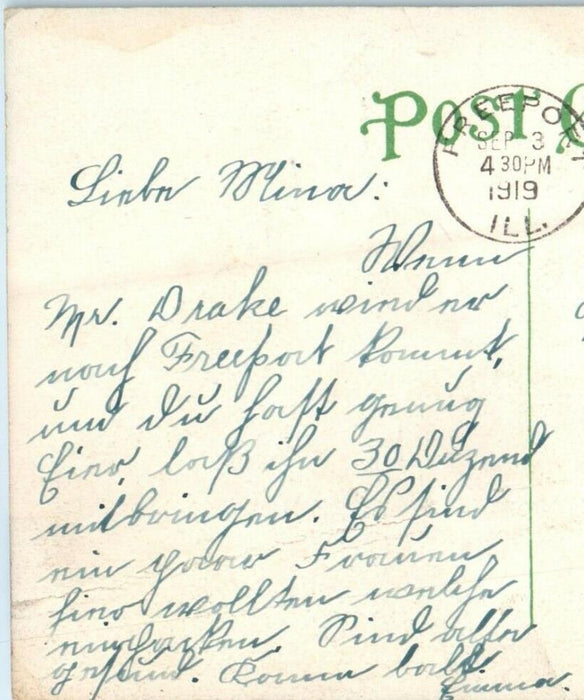 POST
FREEPORT
SEP 3
4 30PM
1919
ILL.
Liebe Mina:
Wenn
Mr. Drake wieder
nach Freeport kommt,
und du hast genug
Eier, laß ihn 30 Duzend
mitbringen. Es sind
ein paar Frauen
hier wollten welche
einpacken. Sind alle
gesund. Komm bald.
Emma.